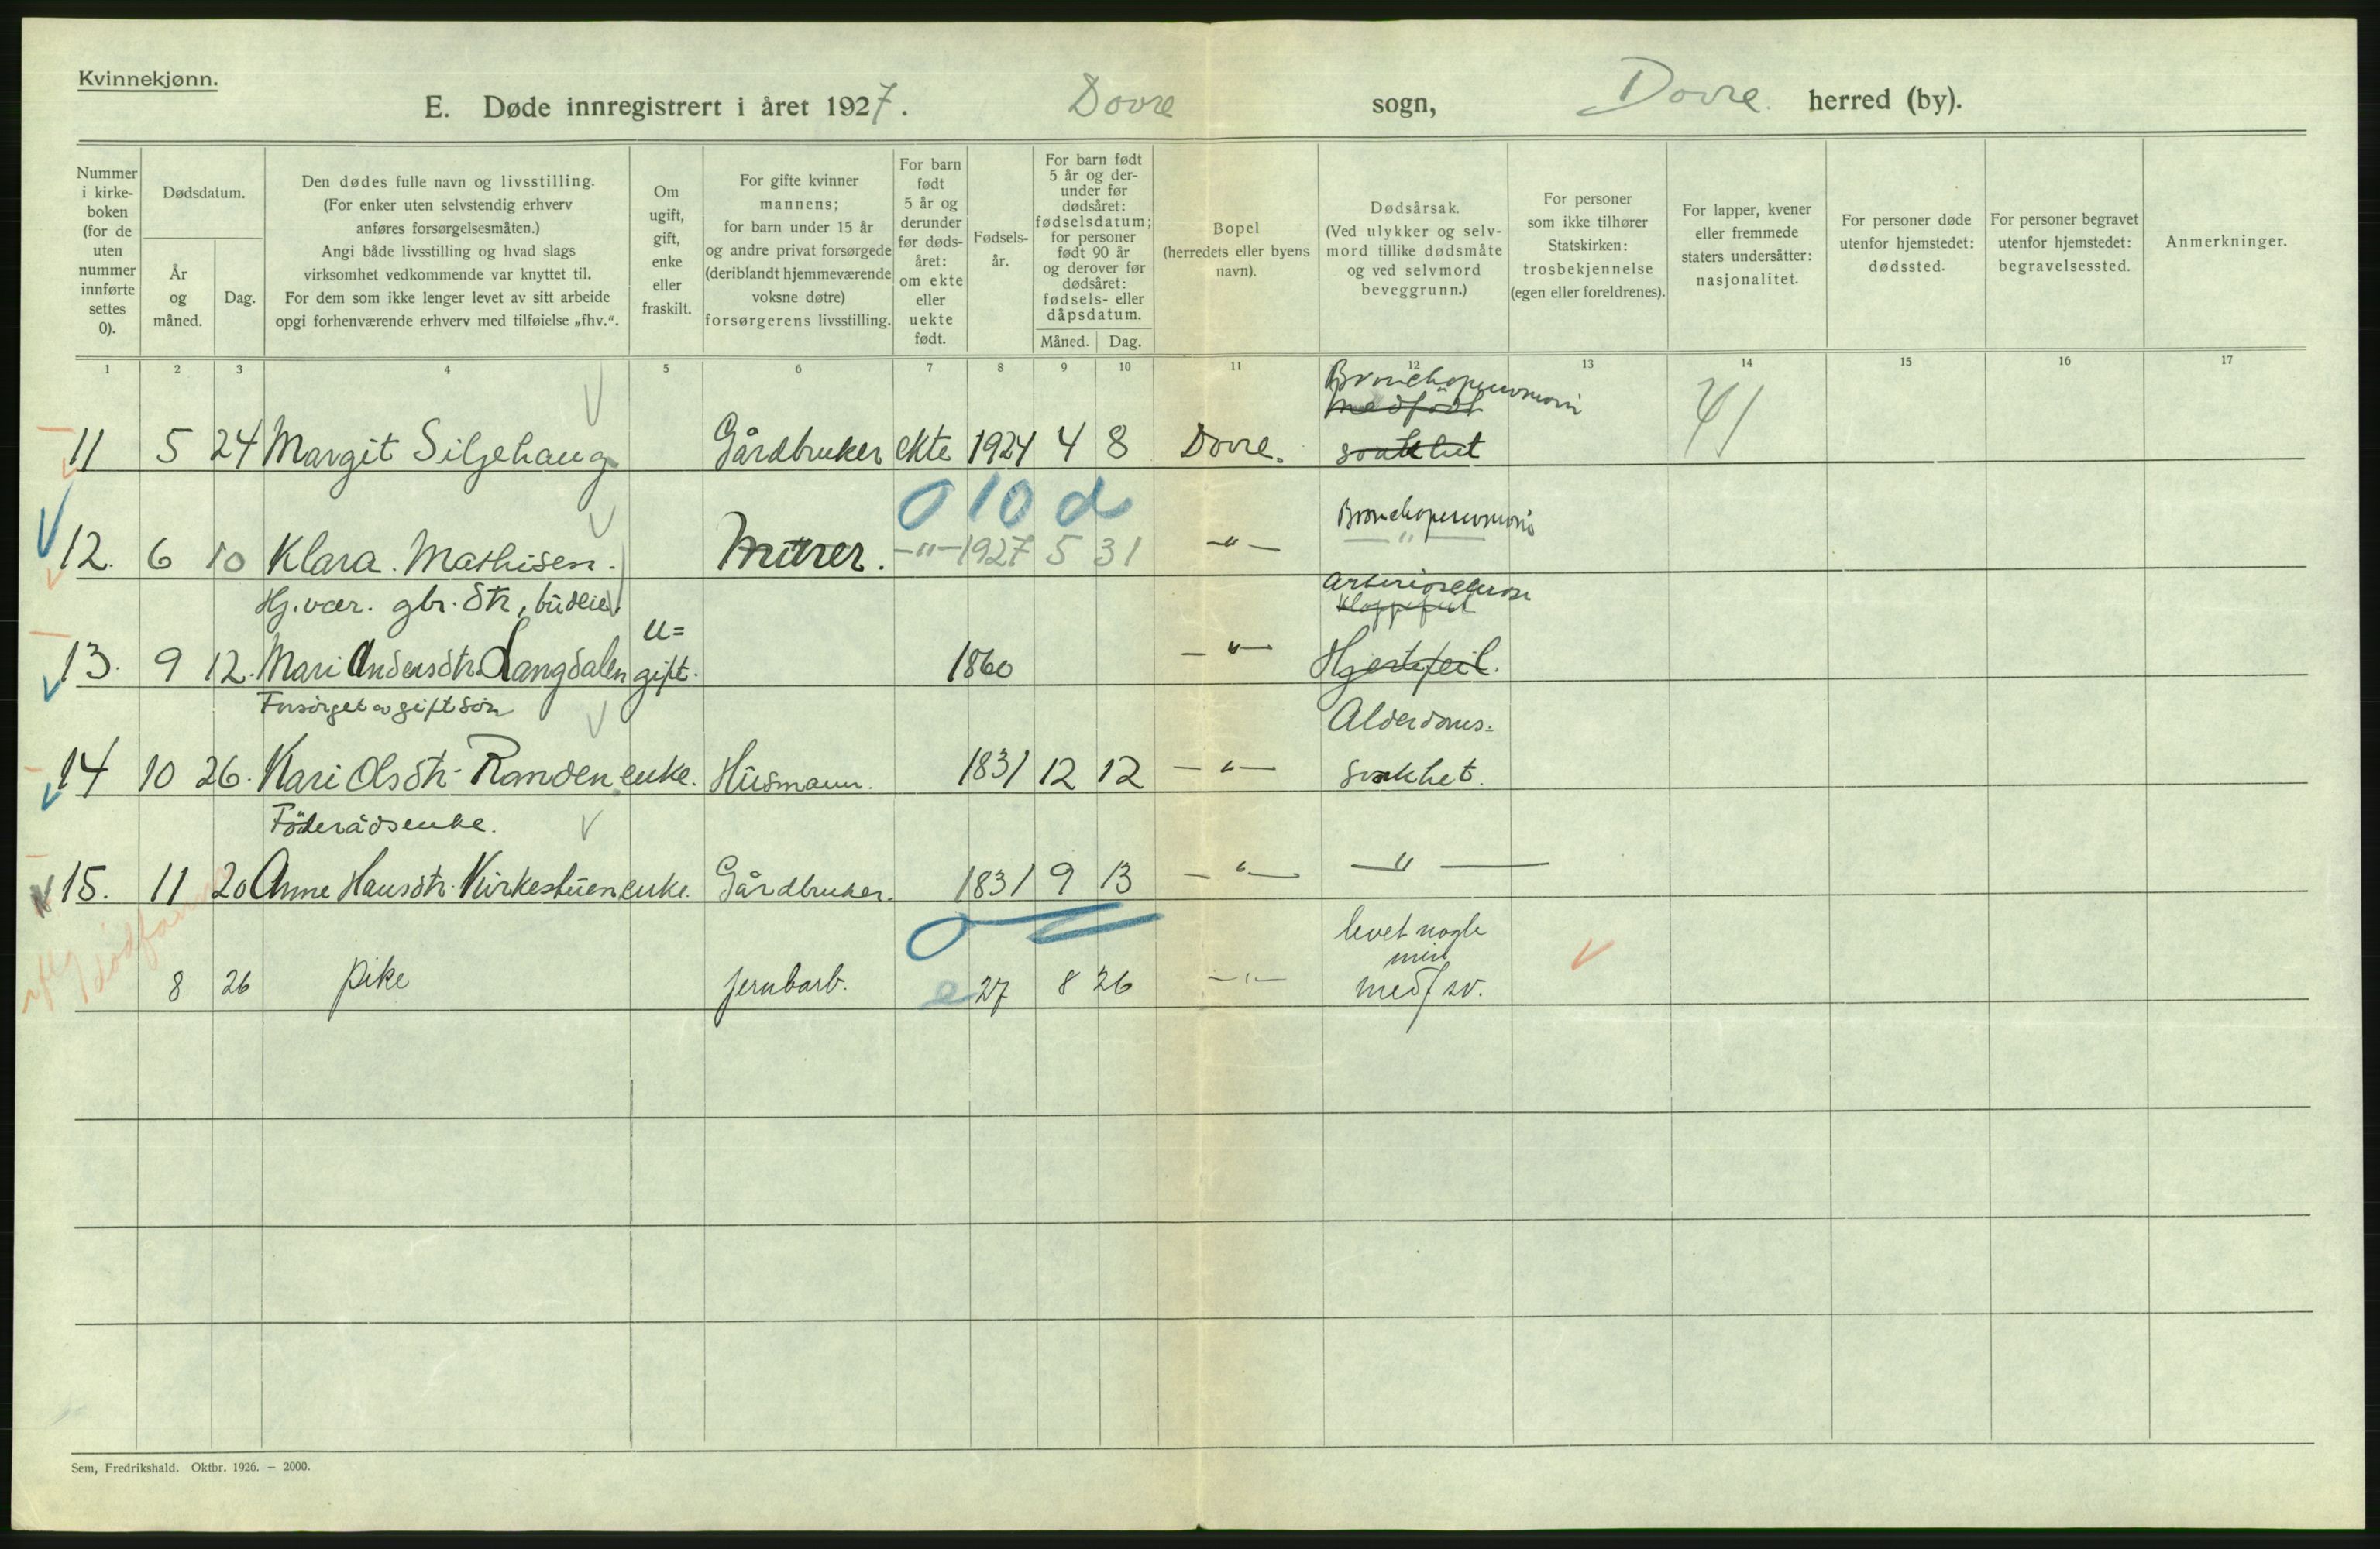 Kvinnekjønn.
E. Døde innregistrert i året 1927. Dovre sogn, Dovre herred (by).
Nummer i kirkeboken (for de uten nummer innførte settes 0).
Dødsdatum.
År og måned.
Dag.
Den dødes fulle navn og livsstilling.
(For enker uten selvstendig erhverv
anføres forsørgelsesmåten.)
Angi både livsstilling og hvad slags
virksomhet vedkommende var knyttet til.
For dem som ikke lenger levet av sitt arbeide
opgi forhenværende erhverv med tilføielse „fhv.“.
Om ugift, gift, enke eller fraskilt.
For gifte kvinner
mannens;
for barn under 15 år
og andre privat forsørgede
(deriblandt hjemmeværende
voksne døtre)
forsørgerens livsstilling.
For barn født 5 år og derunder før dødsåret: om ekte eller uekte født.
Fødsels-
år.
For barn født
5 år og der-
under før
dødsåret:
fødselsdatum;
for personer
født 90 år
og derover før
dødsåret:
fødsels- eller
dåpsdatum.
Måned. Dag.
Bopel
(herredets eller byens
navn).
Dødsårsak.
(Ved ulykker og selv-
mord tillike dødsmåte
og ved selvmord
beveggrunn.)
For personer
som ikke tilhører
Statskirken:
trosbekjennelse
(egen eller foreldrenes).
For lapper, kvener
eller fremmede
staters undersåtter:
nasjonalitet.
For personer døde
utenfor hjemstedet:
dødssted.
For personer begravet
utenfor hjemstedet:
begravelsessted.
Anmerkninger.
1 2 3 4 5 6 7 8 9 10 11 12 13 14 15 16 17
Bronchopneumoni
medfödt
11 5 24 Margit Siljehaug Gårdbruker ekte 1924 4 8 Dovre. svakhet 41
0 10 d
Bronchopneumoni
12. 6 10 Klara. Mathisen. Murer. -"- 1927 5 31 -"- -"-
Hj.vær. gbr. dtr, budeie. Arteriosclerose
Klappefeil
u=
13. 9 12. Mari Andersdtr. Langdalen gift. 1860 -"- Hjertefeil.
Forsörget av gift sön Alderdoms-
14 10 26. Kari Olsdtr. Randen enke. Husmann. 1831 12 12 -"- svakhet.
Föderådsenke.
15. 11 20 Anne Hansdtr. Kirkestuen enke. Gårdbruker. 1831 9 13 -"- -"-
dödf
levet nogle
min
8 26 pike jernbarb. e 27 8 26 -"- medf sv.
Sem, Fredrikshald. Oktbr. 1926. — 2000.